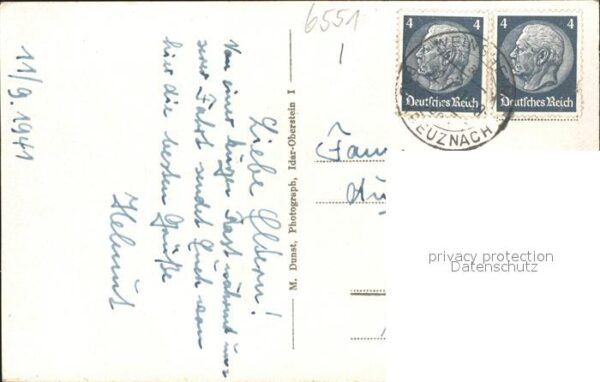 11/9. 1941
Liebe Eltern!
Von einer kurzen Rast während uns-
serer Fahrt sendet Euch von
hier die besten Grüße
Helmut
M. Dunst, Photograph, Idar-Oberstein I
6551
4
4
Deutsches Reich
Deutsches Reich
WEIN
EUZNACH
Fam
privacy protection
Datenschutz